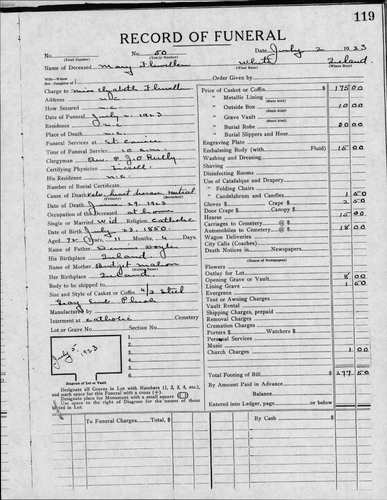 119
RECORD OF FUNERAL
No. No. 50 Date July 2 1923
(Total Number) (Yearly Number)
Name of Deceased Mary Flewellen White Ireland
(What Race) (Where Born)
Charge to Miss Elizabeth Flewellen
Address n/c
How Secured n.c.
Date of Funeral July 2, 1923
Residence n.c.
Place of Death n.c.
Funeral Services at St.
Time of Funeral Service 10 a.m.
Clergyman Rev. P. J. O'Reilly
Certifying Physician
His Residence n.c.
Number of Burial Certificate
Cause of Death heart disease mitral
(Primary) (Secondary)
Date of Death June 29, 1923
Occupation of the Deceased at home
Single or Married Wid Religion Catholic
Date of Birth July 22, 1850
Aged 72 Years 11 Months Days
Name of Father Doyle
His Birthplace Ireland
Name of Mother Bridget Mahon
Her Birthplace Ireland
Body to be shipped to
Size and Style of Casket or Coffin 6/3 Steel
Gray Plush
Manufactured by
Interment at Catholic Cemetery
Lot or Grave No. Section No.
July 5, 1923
1.
2.
3.
4.
5.
6.
7.
Diagram of Lot or Vault
Designate all Graves in Lot with Numbers (1, 2, 3, 4, etc.),
and mark space for this Funeral with a cross (+).
Designate place for Monument with a small square
Use space to the right of Diagram for the names of those
buried in Lot.
To Funeral Charges, Total, $
Order Given by
Price of Casket or Coffin $ 175 00
" Metallic Lining
(State Kind)
" Outside Box 10 00
(State Kind)
" Grave Vault
(State Kind)
" Burial Robe 20 00
(State Kind)
" Burial Slippers and Hose
Engraving Plate
Embalming Body (with Fluid) 15 00
Washing and Dressing
Shaving
Disinfecting Rooms
Use of Catafalque and Drapery
" Folding Chairs
" Candelabrum and Candles 1 50
Gloves $ Crape $ 2 50
Door Crape $ Canopy $
Hearse 15 00
Carriages to Cemetery @
Automobiles to Cemetery @ 18 00
Wagon Deliveries
City Calls (Coaches)
Death Notices in Newspapers
(Names of Newspapers)
Flowers
Outlay for Lot
Opening Grave or Vault 8 00
Lining Grave 1 50
Evergreen
Tent or Awning Charges
Vault Rental
Shipping Charges, prepaid
Removal Charges
Cremation Charges
Porters $ Watchers $
Personal Services
Music
Church Charges 1 00
Total Footing of Bill $ 277 50
By Amount Paid in Advance
Balance
Entered into Ledger, page or below
By Cash $